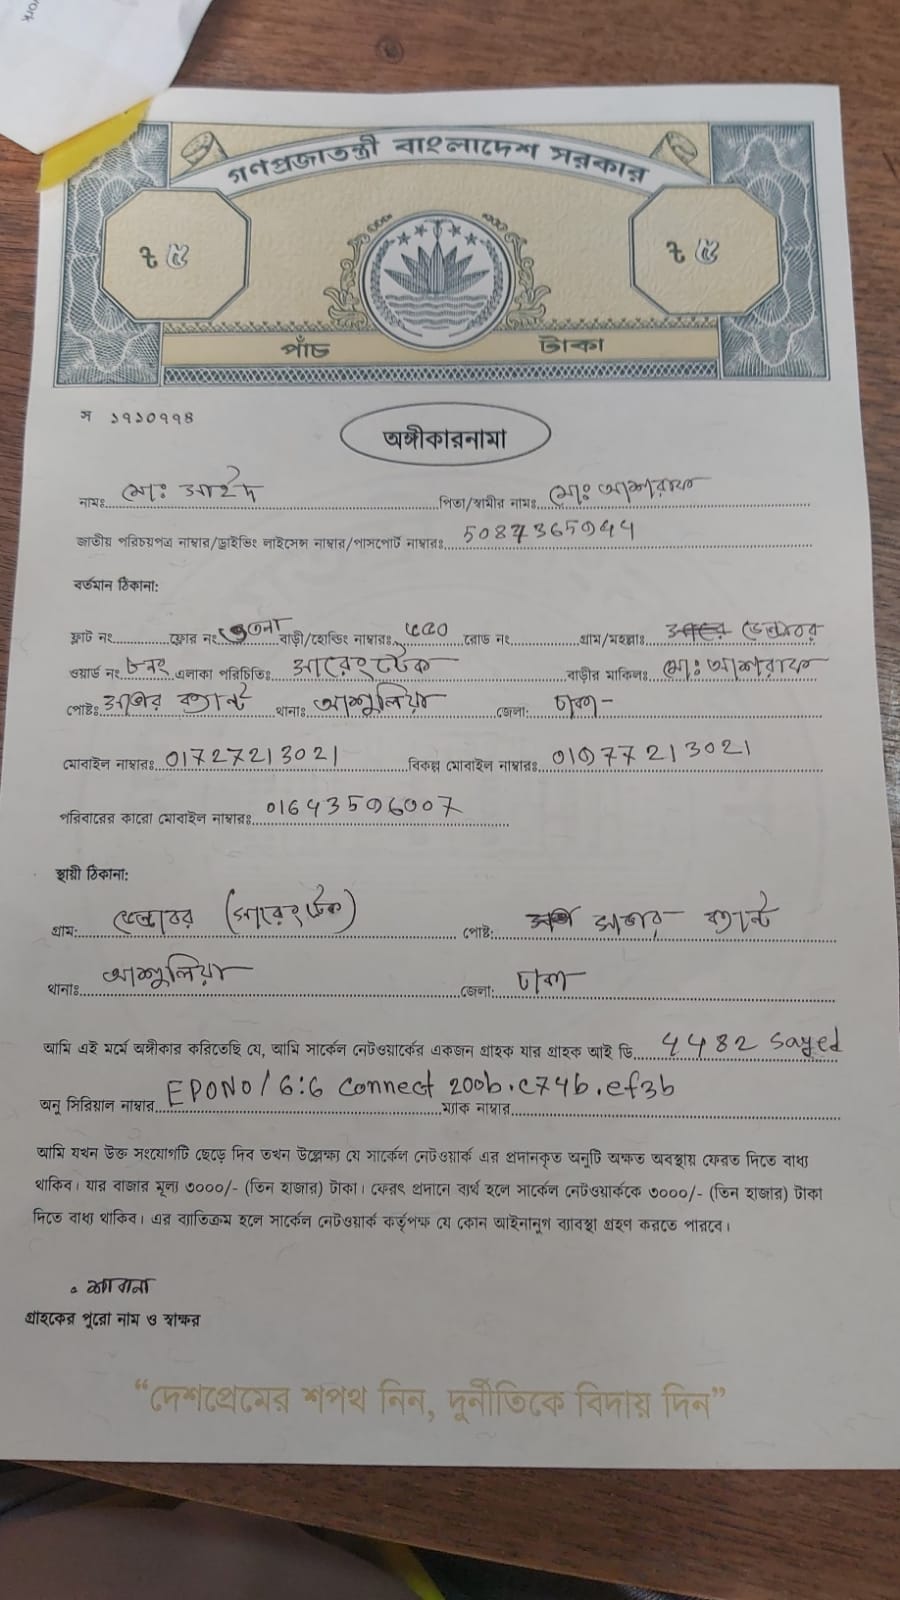 ork
গণপ্রজাতন্ত্রী বাংলাদেশ সরকার
৳ ৫ ৳ ৫
পাঁচ টাকা
স ১৭১০৭৭৪
অঙ্গীকারনামা
নামঃ মোঃ সাইদ পিতা/স্বামীর নামঃ মোঃ আশরাফ
জাতীয় পরিচয়পত্র নাম্বার/ড্রাইভিং লাইসেন্স নাম্বার/পাসপোর্ট নাম্বারঃ
বর্তমান ঠিকানা:
ফ্লাট নং ফ্লোর নং বাড়ী/হোল্ডিং নাম্বারঃ ৫৫০ রোড নং গ্রাম/মহল্লাঃ
ওয়ার্ড নং ৮নং এলাকা পরিচিতিঃ সারেংটেক বাড়ীর মালিকঃ মোঃ আশরাফ
পোষ্টঃ সাভার ক্যান্ট থানাঃ আশুলিয়া জেলা: ঢাকা
মোবাইল নাম্বারঃ 01727213021 বিকল্প মোবাইল নাম্বারঃ 01977213021
পরিবারের কারো মোবাইল নাম্বারঃ
স্থায়ী ঠিকানা:
গ্রাম: (সারেংটেক) পোষ্ট: সাভার ক্যান্ট
থানাঃ আশুলিয়া জেলা: ঢাকা
আমি এই মর্মে অঙ্গীকার করিতেছি যে, আমি সার্কেল নেটওয়ার্কের একজন গ্রাহক যার গ্রাহক আই ডি 4482 Sayed
অনু সিরিয়াল নাম্বার EPON0/6:6 Connect 200b.c74b.ef3b ম্যাক নাম্বার
আমি যখন উক্ত সংযোগটি ছেড়ে দিব তখন উল্লেক্ষ্য যে সার্কেল নেটওয়ার্ক এর প্রদানকৃত অনুটি অক্ষত অবস্থায় ফেরত দিতে বাধ্য
থাকিব। যার বাজার মূল্য ৩০০০/- (তিন হাজার) টাকা। ফেরৎ প্রদানে ব্যর্থ হলে সার্কেল নেটওয়ার্ককে ৩০০০/- (তিন হাজার) টাকা
দিতে বাধ্য থাকিব। এর ব্যাতিক্রম হলে সার্কেল নেটওয়ার্ক কর্তৃপক্ষ যে কোন আইনানুগ ব্যাবস্থা গ্রহণ করতে পারবে।
শাবানা
গ্রাহকের পুরো নাম ও স্বাক্ষর
“দেশপ্রেমের শপথ নিন, দুর্নীতিকে বিদায় দিন”